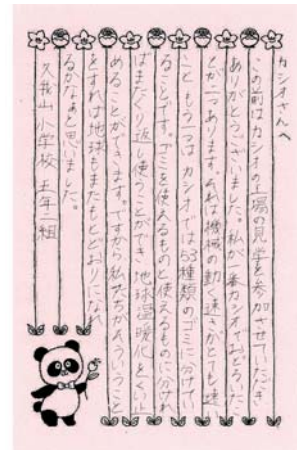 カシオさんへ
この前はカシオの工場の見学を参加させていただき
ありがとうございました。私が一番カシオでおどろいたこ
とが二つあります。それは機械の動く速さがとても速い
こと もう一つは カシオでは53種類のゴミに分けてい
ることです。ゴミを使えるものと使えるものに分けれ
ばまたくり返し使うことができ 地球温暖化をくい止
めることができます。ですから私たちがそういうこと
をすれば地球もまたもとどおりになれ
るかなぁと思いました。
久我山小学校 五年二組